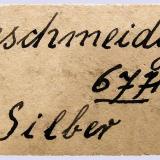 schmeid
677
Silber